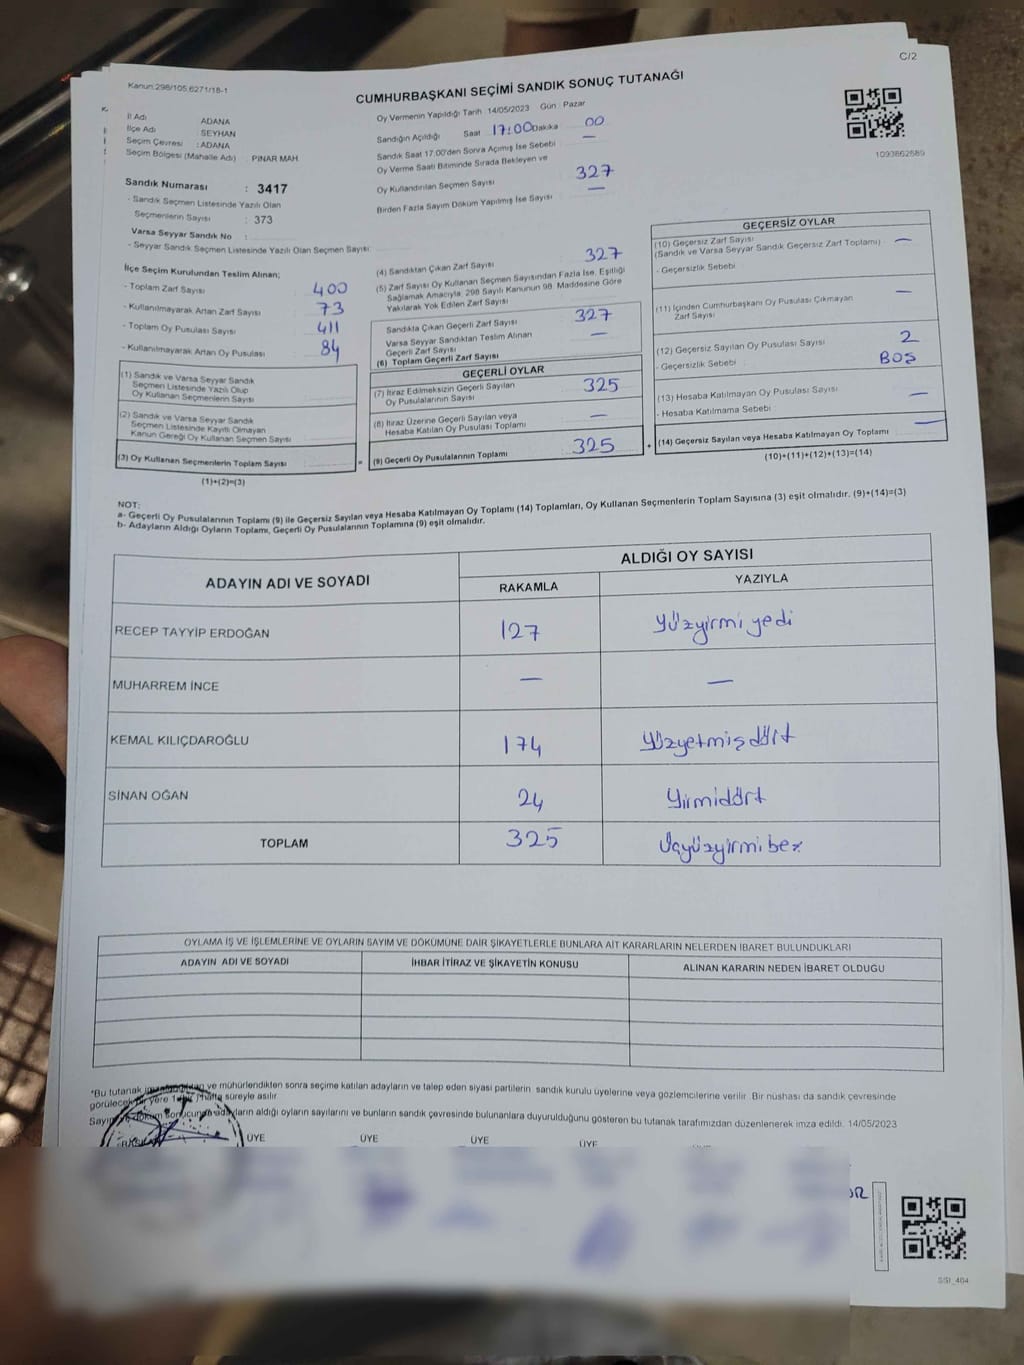 C/2
Kanun:298/105,6271/18-1
CUMHURBAŞKANI SEÇİMİ SANDIK SONUÇ TUTANAĞI
İl Adı : ADANA
İlçe Adı : SEYHAN
Seçim Çevresi : ADANA
Seçim Bölgesi (Mahalle Adı) : PINAR MAH
Oy Vermenin Yapıldığı Tarih : 14/05/2023 Gün : Pazar
Sandığın Açıldığı Saat 17:00 Dakika 00
Sandık Saat 17:00'den Sonra Açımış İse Sebebi : —
Oy Verme Saati Bitiminde Sırada Bekleyen ve
Oy Kullandırılan Seçmen Sayısı : 327
Birden Fazla Sayım Döküm Yapılmış İse Sayısı : —
1093862689
Sandık Numarası : 3417
- Sandık Seçmen Listesinde Yazılı Olan
Seçmenlerin Sayısı : 373
Varsa Seyyar Sandık No :
- Seyyar Sandık Seçmen Listesinde Yazılı Olan Seçmen Sayısı:
İlçe Seçim Kurulundan Teslim Alınan;
- Toplam Zarf Sayısı : 400
- Kullanılmayarak Artan Zarf Sayısı : 73
- Toplam Oy Pusulası Sayısı : 411
- Kullanılmayarak Artan Oy Pusulası : 84
(1) Sandık ve Varsa Seyyar Sandık
Seçmen Listesinde Yazılı Olup
Oy Kullanan Seçmenlerin Sayısı :
(2) Sandık ve Varsa Seyyar Sandık
Seçmen Listesinde Kayıtlı Olmayan
Kanun Gereği Oy Kullanan Seçmen Sayısı :
(3) Oy Kullanan Seçmenlerin Toplam Sayısı :
(1)+(2)=(3)
(4) Sandıktan Çıkan Zarf Sayısı : 327
(5) Zarf Sayısı Oy Kullanan Seçmen Sayısından Fazla İse, Eşitliği
Sağlamak Amacıyla, 298 Sayılı Kanunun 98. Maddesine Göre
Yakılarak Yok Edilen Zarf Sayısı :
Sandıkta Çıkan Geçerli Zarf Sayısı : 327
Varsa Seyyar Sandıktan Teslim Alınan
Geçerli Zarf Sayısı : —
(6) Toplam Geçerli Zarf Sayısı
GEÇERLİ OYLAR
(7) İtiraz Edilmeksizin Geçerli Sayılan
Oy Pusulalarının Sayısı : 325
(8) İtiraz Üzerine Geçerli Sayılan veya
Hesaba Katılan Oy Pusulası Toplamı : —
(9) Geçerli Oy Pusulalarının Toplamı : 325
GEÇERSİZ OYLAR
(10) Geçersiz Zarf Sayısı
(Sandık ve Varsa Seyyar Sandık Geçersiz Zarf Toplamı) : —
- Geçersizlik Sebebi :
(11) İçinden Cumhurbaşkanı Oy Pusulası Çıkmayan
Zarf Sayısı : —
(12) Geçersiz Sayılan Oy Pusulası Sayısı : 2
- Geçersizlik Sebebi : BOŞ
(13) Hesaba Katılmayan Oy Pusulası Sayısı : —
- Hesaba Katılmama Sebebi :
(14) Geçersiz Sayılan veya Hesaba Katılmayan Oy Toplamı : —
(10)+(11)+(12)+(13)=(14)
NOT:
a- Geçerli Oy Pusulalarının Toplamı (9) ile Geçersiz Sayılan veya Hesaba Katılmayan Oy Toplamı (14) Toplamları, Oy Kullanan Seçmenlerin Toplam Sayısına (3) eşit olmalıdır. (9)+(14)=(3)
b- Adayların Aldığı Oyların Toplamı, Geçerli Oy Pusulalarının Toplamına (9) eşit olmalıdır.
ADAYIN ADI VE SOYADI ALDIĞI OY SAYISI
RAKAMLA YAZIYLA
RECEP TAYYİP ERDOĞAN 127 Yüzyirmi yedi
MUHARREM İNCE — —
KEMAL KILIÇDAROĞLU 174 Yüzyetmişdört
SİNAN OĞAN 24 Yirmidört
TOPLAM 325 Üçyüzyirmi beş
OYLAMA İŞ VE İŞLEMLERİNE VE OYLARIN SAYIM VE DÖKÜMÜNE DAİR ŞİKAYETLERLE BUNLARA AİT KARARLARIN NELERDEN İBARET BULUNDUKLARI
ADAYIN ADI VE SOYADI İHBAR İTİRAZ VE ŞİKAYETİN KONUSU ALINAN KARARIN NEDEN İBARET OLDUĞU
*Bu tutanak ve mühürlendikten sonra seçime katılan adayların ve talep eden siyasi partilerin sandık kurulu üyelerine veya gözlemcilerine verilir. Bir nüshası da sandık çevresinde
görülecek bir yere 1 hafta süreyle asılır.
Sayım ve döküm sonucunda adayların aldığı oyların sayılarını ve bunların sandık çevresinde bulunanlara duyurulduğunu gösteren bu tutanak tarafımızdan düzenlenerek imza edildi. 14/05/2023
BAŞKAN ÜYE ÜYE ÜYE ÜYE
SSI_404